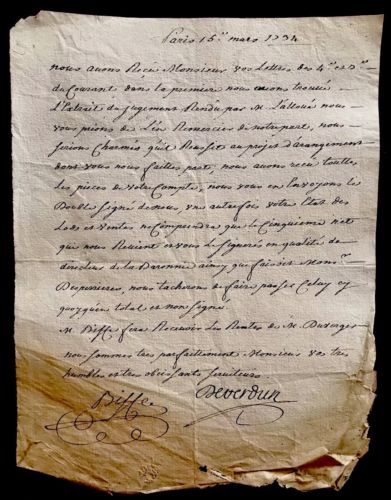 Paris 15e mars 1734
nous auons Recü Monsieur vos Lettres des 4e et
du Courant dans la premiere nous auons trouué
L'Extrait du Jugement Rendu par M. Lalloüé nous
vous prions de L'en Remercier de notre part, nous
serions Charmés qu'il Reussit au projet d'arangement
dont vous nous faittes part, nous auons recü toutes
Les pieces de votre Compte, nous vous en Enuoyons le
Double signé de nous, une autre fois votre Etat des
Lods et ventes ne Comprendra que le Cinquieme net
que nous Reuient et vous le signerés en qualité de
directeur de la Baronnie ainsy que faisoit Mons.r
Desperrieres, nous tacherons de faire passer Celuy cy
quoyque total et non signé.
M. Biffe fera Receuoir les Rentes de M. Duverger
nous sommes tres parfaittement Monsieur vos tres
humbles et tres obeissants seruiteurs
Biffe Deverdun